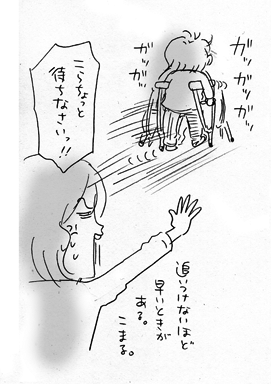 ガッ
ガッ
ガッ
ガッ
ガッ
こらちょっと
待ちなさいっ!!
追いつけないほど
早いときが
ある。
こまる。